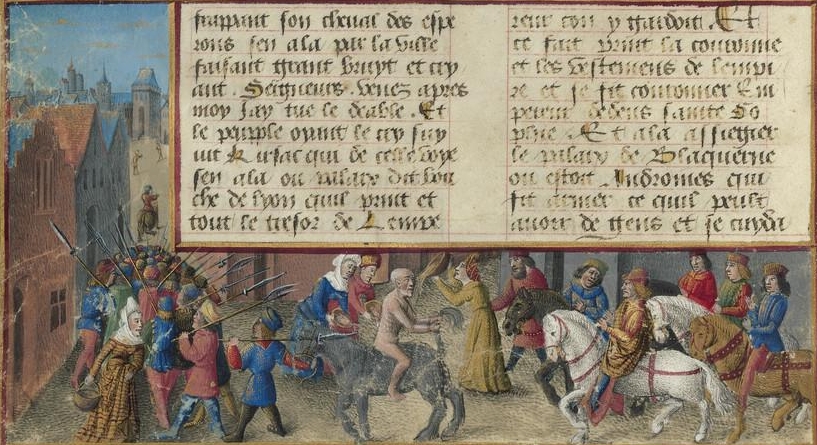 frappant son cheual des espe
rons sen ala par la ville
faisant grant bruyt et cry
ant. Seigneurs venez apres
moy Jay tue le deable. Et
le peuple ouant le cry suy
uit Kursac qui de celle voye
sen ala ou palaix dit bou
che de lyon quil print et
tout le tresor de Lempe
reur con y gardoit. Et
ce fait print la couronne
et les vestemens de lempi
re et se fit couronner Em
pereur dedens sainte So
phie. Et ala assieger
le palaix de Blaquerne
ou estoit Andromes qui
fit armer ce quil peult
auoir de gens et se cuyda